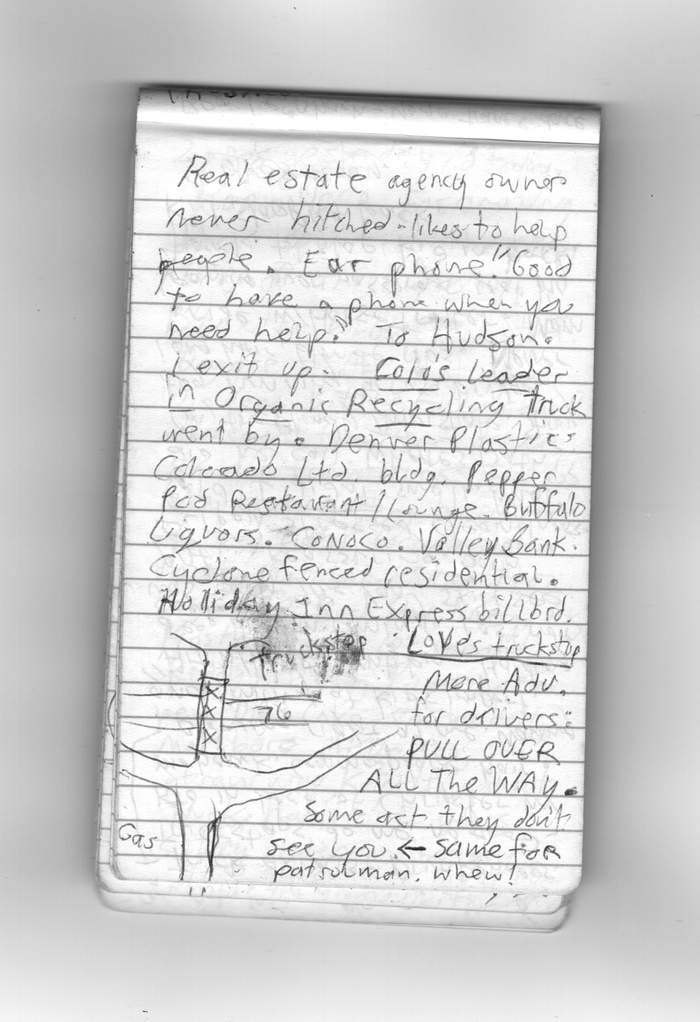 Real estate agency owner
never hitched - likes to help
people. Ear phone! "Good
to have a phone when you
need help." To Hudson.
1 exit up. Colo's Leader
in Organic Recycling truck
went by. Denver Plastics
Colorado Ltd. bldg. Pepper
Pod Restaurant/Lounge. Buffalo
Liquors. Conoco. Valley Bank.
Cyclone fenced residential.
Holliday Inn Express billbrd.
Truckstop Love's truckstop
More Adv.
76 for drivers:
PULL OVER
ALL The WAY.
Some act they don't
Gas see you. ← same for
patrolman. whew!